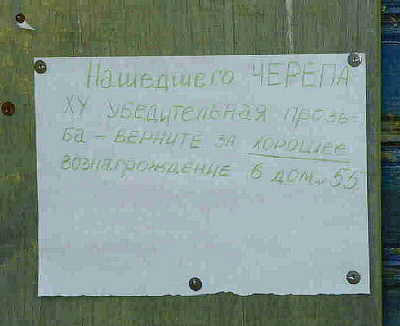 Нашедшего ЧЕРЕПА
ХУ убедительная прозь-
ба - верните за хорошее
вознагрождение в дом. 55